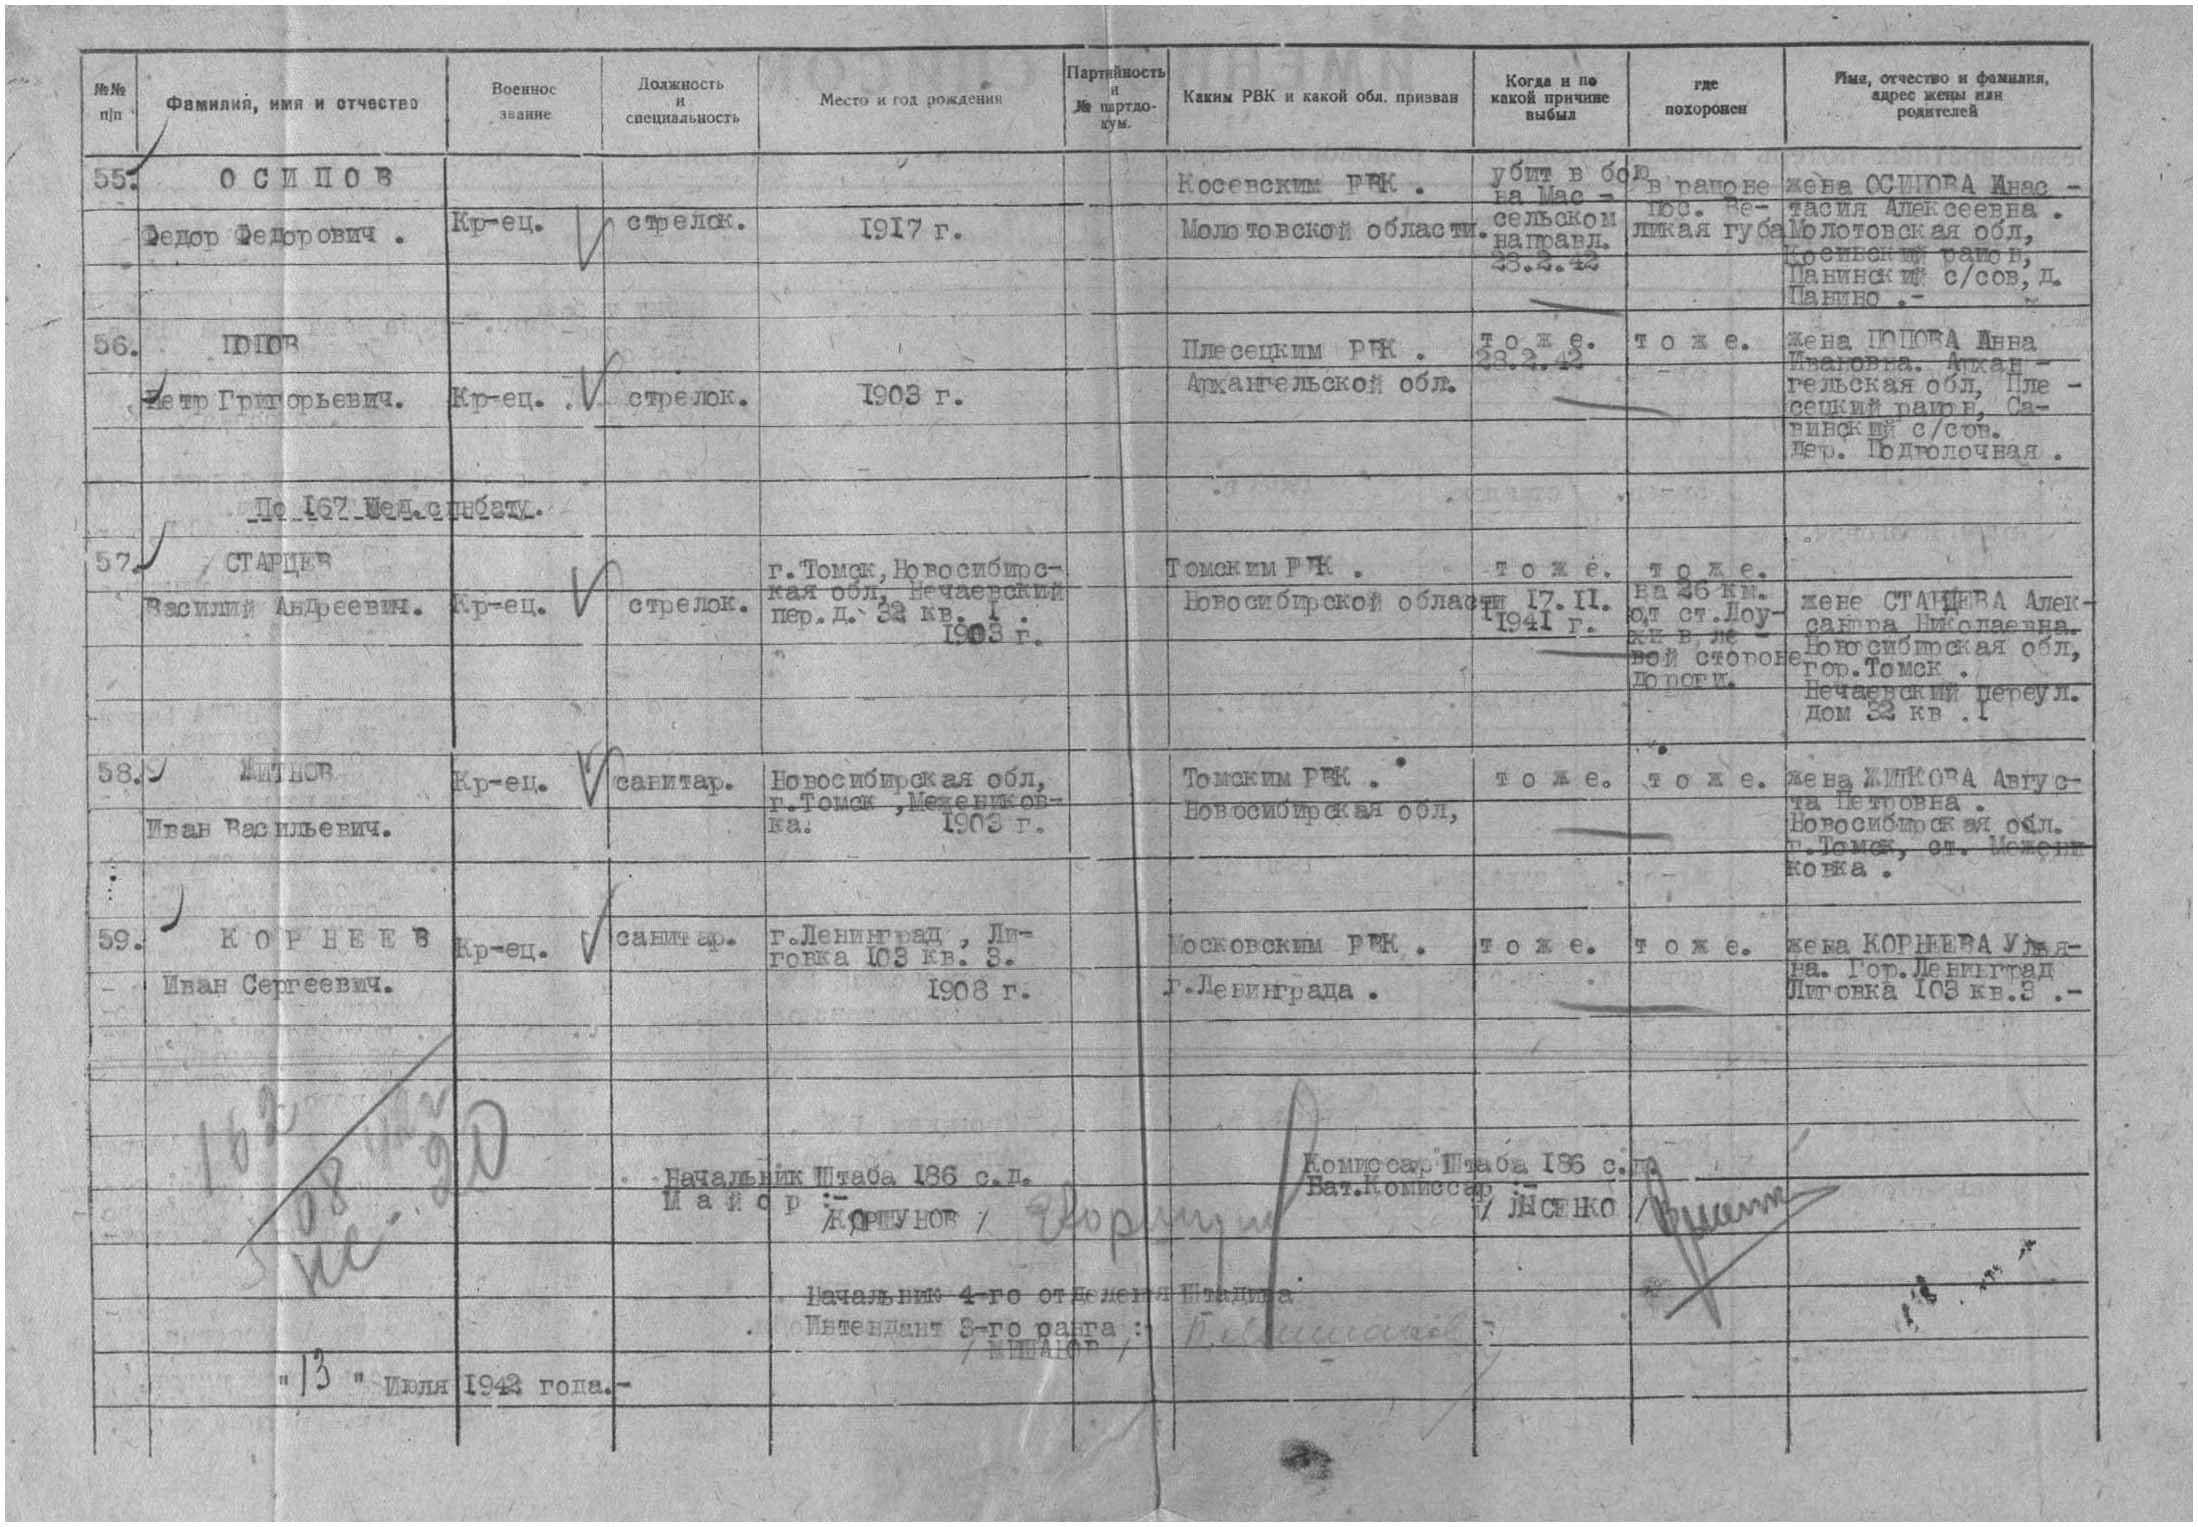 №№ п/п
Фамилия, имя и отчество
Военное звание
Должность и специальность
Место и год рождения
Партийность и № партдокум.
Каким РВК и какой обл. призван
Когда и по какой причине выбыл
где похоронен
Имя, отчество и фамилия, адрес жены или родителей
55.
ОСИПОВ
Федор Федорович .
Кр-ец.
стрелок.
1917 г.
Косевским РВК .
Молотовской области.
убит в бою
на Мас -
сельском
направл.
28.2.42
в районе
пос. Ве-
ликая губа
жена ОСИПОВА Анас -
тасия Алексеевна .
Молотовская обл,
Косинский район,
Панинский с/сов, д.
Панино .-
56.
ПОПОВ
Петр Григорьевич.
Кр-ец.
стрелок.
1903 г.
Плесецким РВК .
Архангельской обл.
т о ж е.
28.2.42
т о ж е.
жена ПОПОВА Анна
Ивановна. Архан -
гельская обл, Пле -
сецкий район, Са-
винский с/сов.
дер. Подволочная .
По 167 Мед.санбату.
57.
СТАРЦЕВ
Василий Андреевич.
Кр-ец.
стрелок.
г.Томск, Новосибирс-
кая обл, Нечаевский
пер. д. 32 кв. I .
1903 г.
Томским РВК .
Новосибирской области
т о ж е.
17.II.
1941 г.
т о ж е.
на 26 км.
от ст.Лоу-
хи в ле -
вой стороне
дороги.
жене СТАРЦЕВА Алек-
сандра Николаевна.
Новосибирская обл,
гор.Томск .
Нечаевский переул.
дом 32 кв .I
58.
ЖИТКОВ
Иван Васильевич.
Кр-ец.
санитар.
Новосибирская обл,
г.Томск ,Межеников-
ка.
1903 г.
Томским РВК .
Новосибирская обл,
т о ж е.
т о ж е.
жена ЖИТКОВА Авгус-
та Петровна .
Новосибирская обл.
г.Томск, ст. Межени
ковка .
59.
КОРНЕЕВ
Иван Сергеевич.
Кр-ец.
санитар.
г.Ленинград , Ли-
говка 103 кв. 3.
1908 г.
Московским РВК .
г.Ленинграда .
т о ж е.
т о ж е.
жена КОРНЕЕВА Улья-
на. Гор.Ленинград
Лиговка 103 кв.3 .-
162
08
20
Начальник Штаба 186 с.д.
Майор :-
/КОРШУНОВ /
Комиссар Штаба 186 с.д.
Бат.Комиссар :-
/ ЛЫСЕНКО /
Начальник 4-го отделения Штадива
Интендант 3-го ранга :-
"13" Июля 1942 года.-